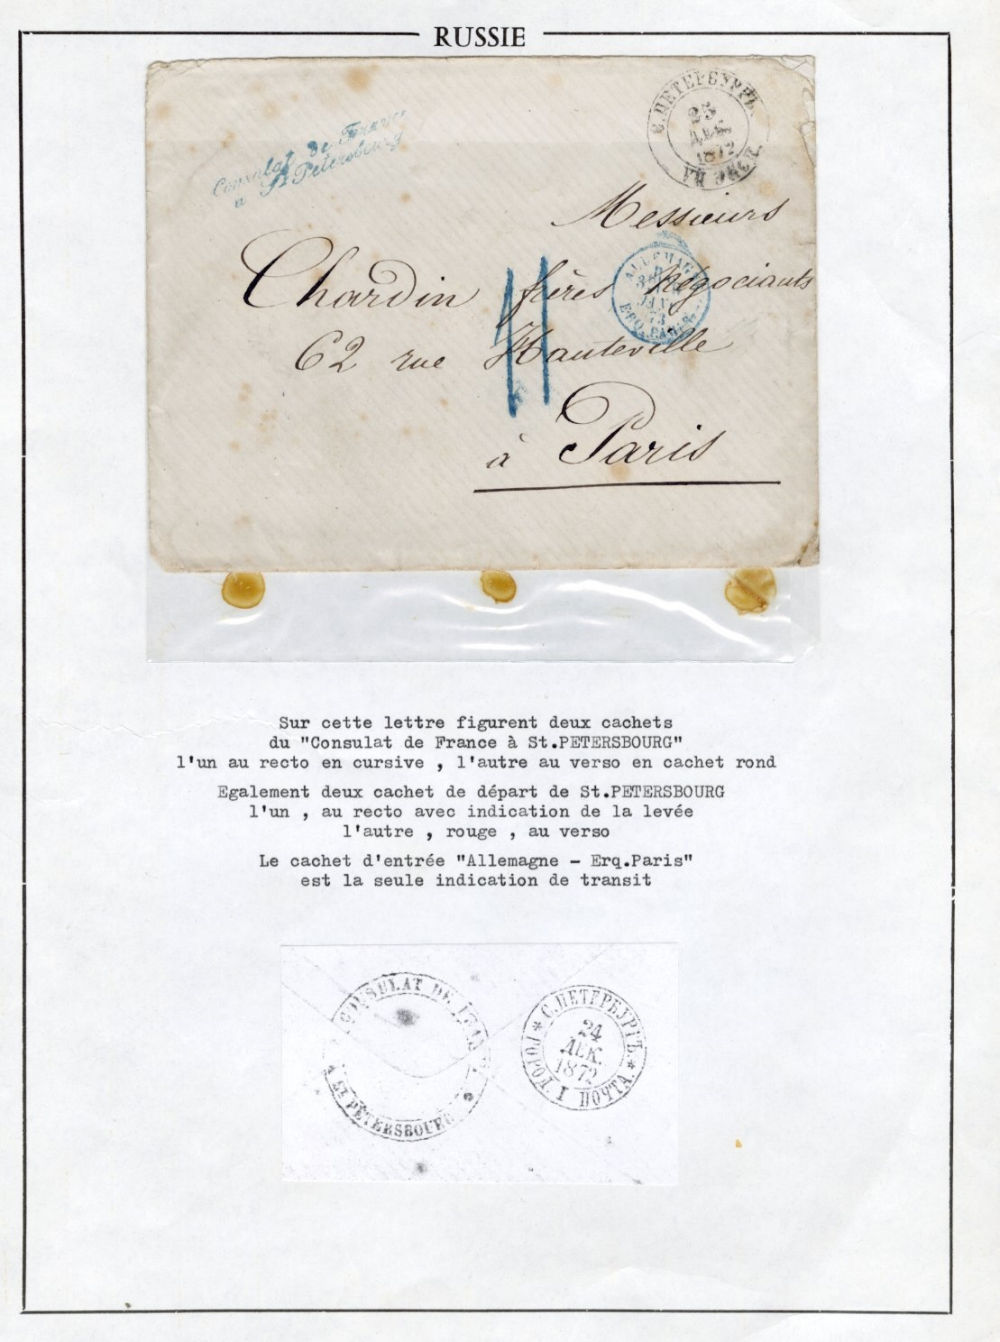 RUSSIE
Consulat de France
à St Petersbourg
С. ПЕТЕРБУРГЪ.
23
ДЕК.
1872
Messieurs
Chardin frères Négociants
62 rue Hauteville
à Paris
ALLEMAG
3
JANV
73
ERQ. PARIS
Sur cette lettre figurent deux cachets
du "Consulat de France à St.PETERSBOURG"
l'un au recto en cursive , l'autre au verso en cachet rond
Egalement deux cachet de départ de St.PETERSBOURG
l'un , au recto avec indication de la levée
l'autre , rouge , au verso
Le cachet d'entrée "Allemagne - Erq.Paris"
est la seule indication de transit
CONSULAT DE
À ST PETERSBOURG
С. ПЕТЕРБУРГЪ.
24
ДЕК.
1872
ГОРОД. I ПОЧТА